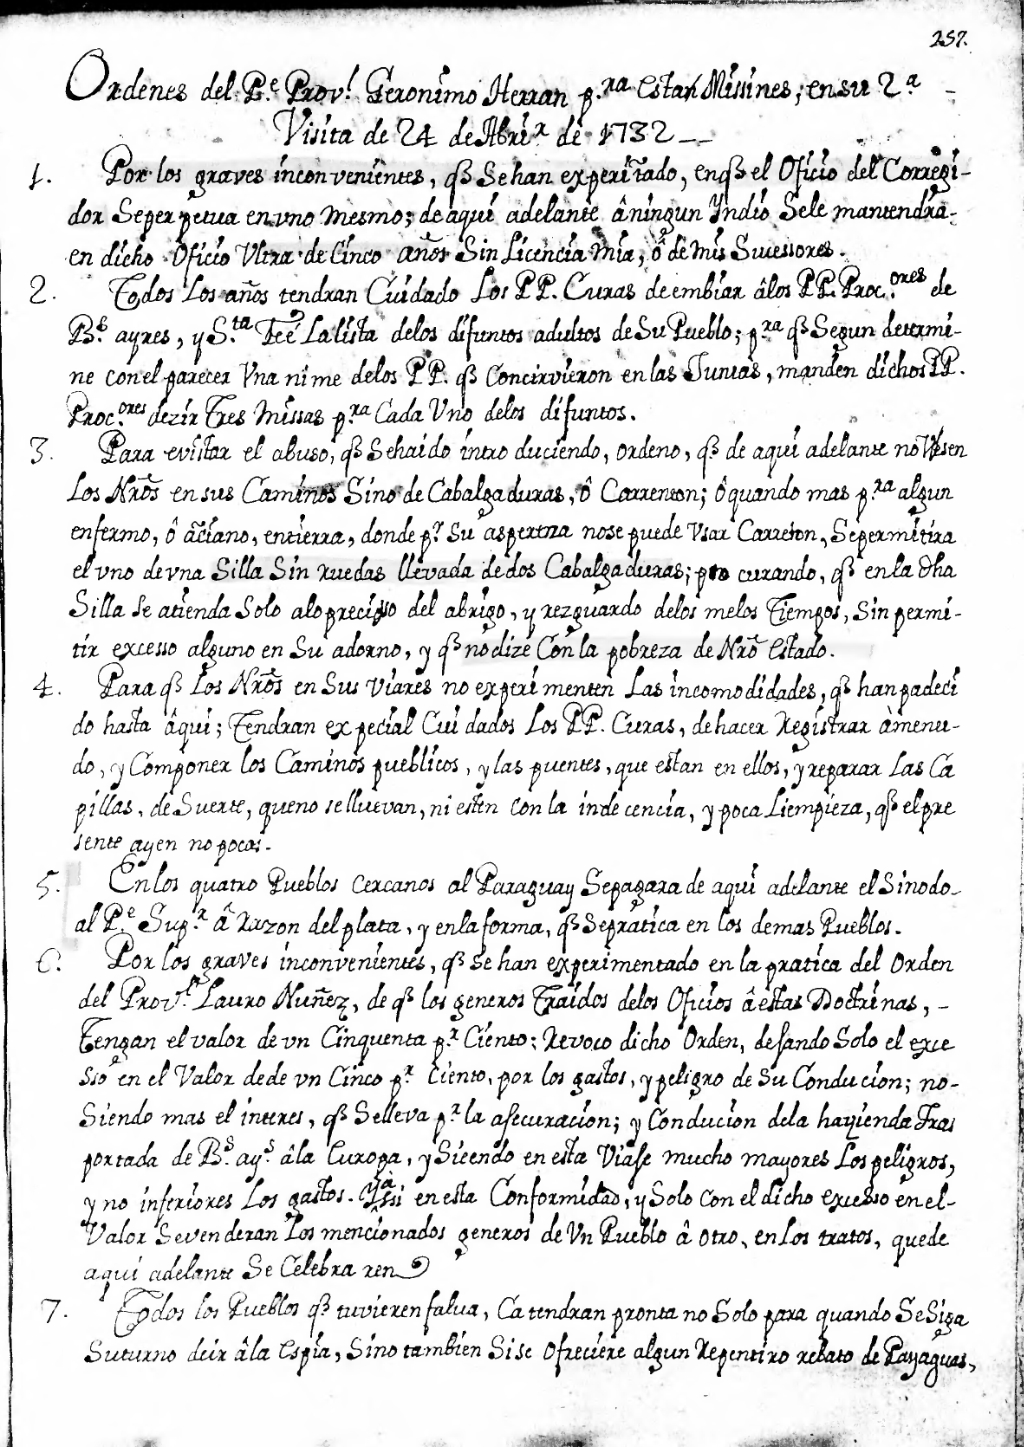 257.
Ordenes del P.e Prov.l Geronimo Herran p.ra estas Missines, en su 2.a
Visita de 24 de Abri.l de 1732
1. Por los graves inconvenientes, q̃ se han experitado, en q̃ el Oficio del Corregi-
dor Seper petua en vno mesmo; de aqui adelante â ningun Yndio Sele mantendra
en dicho Oficio Vltra de Cinco años Sin Licencia mia, ô de mis Sucessores.
2. Todos los años tendran Cuidado Los PP. Curas de embiar âlos PP. Proc.ores de
B.s ayres, y S.ta Feé La lista delos difuntos adultos de Su Pueblo; p.ra q̃ Segun determi-
ne con el parecer Vna nime delos PP. q̃ Concirvieron en las Juntas, manden dichos PP.
Proc.ores dezir Tres Missas p.ra Cada Vno delos difuntos.
3. Para evistar el abuso, q̃ Sehaido intro duciendo, ordeno, q̃ de aqui adelante no Vsen
Los Nrõs en sus Caminos Sino de Cabalgaduras, ô Carreton; ô quando mas p.ra algun
enfermo, ô añciano, entierra, donde p.r Su aspereza nose puede Vsar Carreton, Sepermitira
el vno de vna Silla Sin ruedas llevada de dos Cabalgaduras; pro curando, q̃ en la dha
Silla se atienda Solo alo precisso del abrigo, y rezguardo delos melos Tiempos, Sin permi-
tir excesso alguno en Su adorno, y q̃ no dize Con la pobreza de Nrõ Estado.
4. Para q̃ Los Nrõs en Sus Viares no experi menten Las incomodidades, q̃ han padeci
do hasta âqui; Tendran expecial Cui dados Los PP. Curas, de hacer Registrar àmenu-
do, y Componer los Caminos pueblicos, y las puentes, que estan en ellos, y reparar Las Ca
pillas, de Suerte, queno selluevan, ni esten con la inde cencia, y poca Liempieza, q̃ el pre
sente ayen no pocas.
5. En los quatro Pueblos cercanos al Paraguay Sepagara de aqui adelante el Sinodo
al P.e Sup.r â Razon del plata, y en la forma, q̃ Sepratica en los demas Pueblos.
6. Por los graves inconvenientes, q̃ se han experimentado en la pratica del Orden
del Prov.l Lauro Nuñez, de q̃ los generos Traidos delos Oficios â estas Doctrinas, -
Tengan el valor de vn Cinquenta p.r Ciento; Revoco dicho Orden, desando Solo el exce
sso en el Valor dede vn Cinco p.r Ciento, por los gastos, y peligro de Su Conducion; no-
Siendo mas el interes, q̃ Selleva p.r la asecuracion; y Conducion dela hazienda Tras
portada de B.s ay.s âla Europa, y Sieendo en esta Viase mucho mayores Los peligros,
y no inferiores Los gastos. Y assi en esta Conformidad, y Solo con el dicho excesso en el-
Valor Seven deran Los mencionados generos de Vn Pueblo â otro, en Los tratos, quede
aqui adelante Se Celebra ren
7. Todos los Pueblos q̃ tuvieren falua, Ca tendran pronta no Solo para quando Se Siga
Suturno deir âla espia, Sino tambien Si se Ofreciere algun Repentiro rebato de Payaguas,